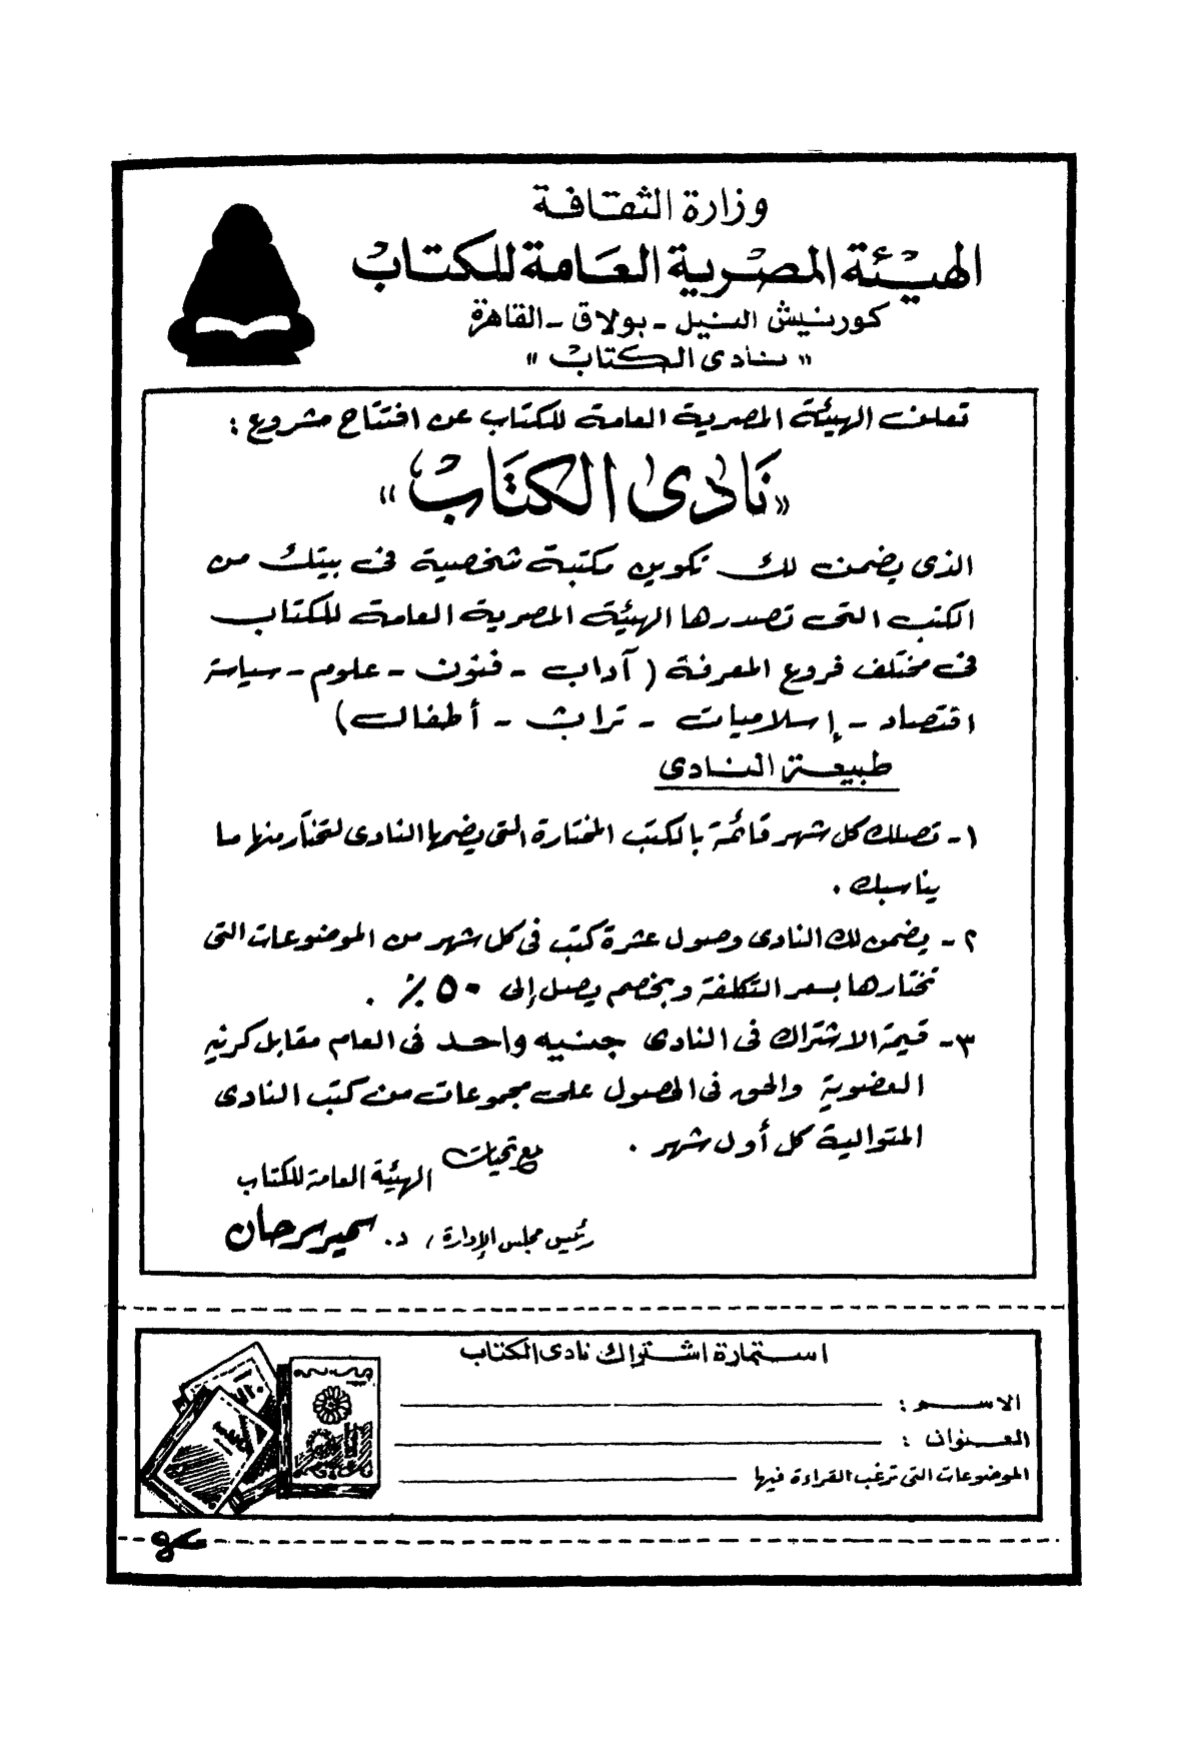 وزارة الثقافة
الهيئة المصرية العامة للكتاب
كورنيش النيل - بولاق - القاهرة
« نادى الكتاب »
تعلن الهيئة المصرية العامة للكتاب عن افتتاح مشروع :
« نادى الكتاب »
الذى يضمن لك تكوين مكتبة شخصية فى بيتك من
الكتب التى تصدرها الهيئة المصرية العامة للكتاب
فى مختلف فروع المعرفة ( آداب - فنون - علوم - سياسة
اقتصاد - إسلاميات - تراث - أطفال )
طبيعة النادى
١- تصلك كل شهر قائمة بالكتب المختارة التى يضمها النادى لتختار منها ما
يناسبك .
٢- يضمن لك النادى وصول عشرة كتب فى كل شهر من الموضوعات التى
تختارها بسعر التكلفة وبخصم يصل إلى ٥٠ ٪ .
٣- قيمة الاشتراك فى النادى جنيه واحد فى العام مقابل كرنيه
العضوية والحق فى الحصول على مجموعات من كتب النادى
المتوالية كل أول شهر .
مع تحيات
الهيئة العامة للكتاب
رئيس مجلس الإدارة / د. سمير سرحان
استمارة اشتراك نادى الكتاب
الاسم :
العنوان :
الموضوعات التى ترغب القراءة فيها